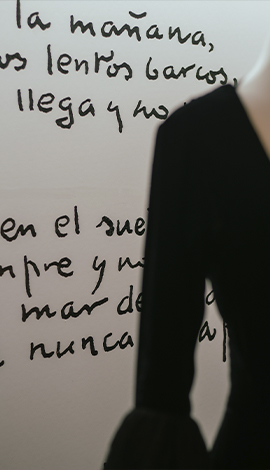 la mañana,
os lentos barcos,
llega y no
en el sue
mpre y no
mar de
nunca